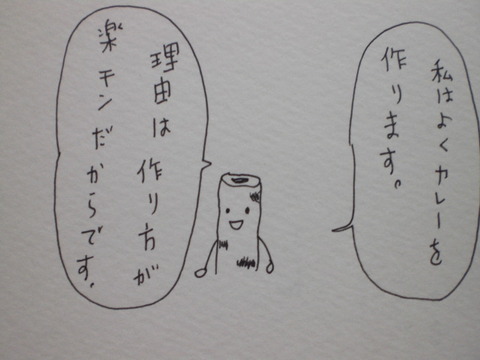 私はよくカレーを
作ります。
理由は作り方が
楽チンだからです.